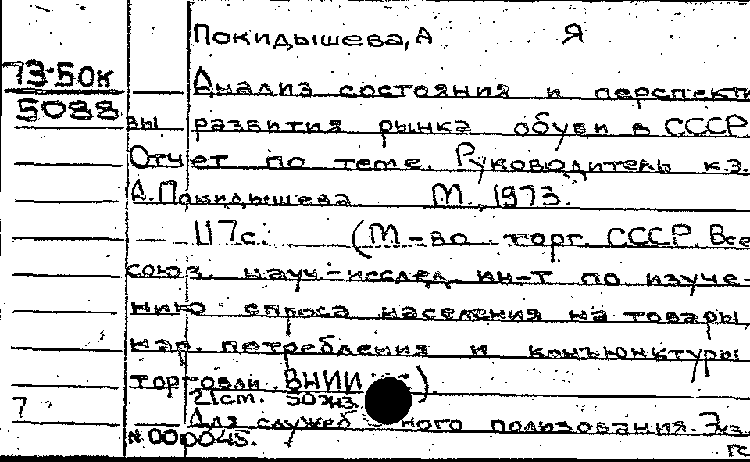 Покидышева, А Я
73-50к
5088
Анализ состояния и перспекти
вы развития рынка обуви в СССР.
Отчет по теме. Руководитель к.э.
А. Покидышева М., 1973.
117с. (М-во торг. СССР. Все
союз. науч.-исслед. ин-т по изуче-
нию спроса населения на товары
нар. потребления и конъюнктуры
торговли. ВНИИ )
21см. 50экз.
7
Для служеб ного пользования. Экз.
№ 000045.